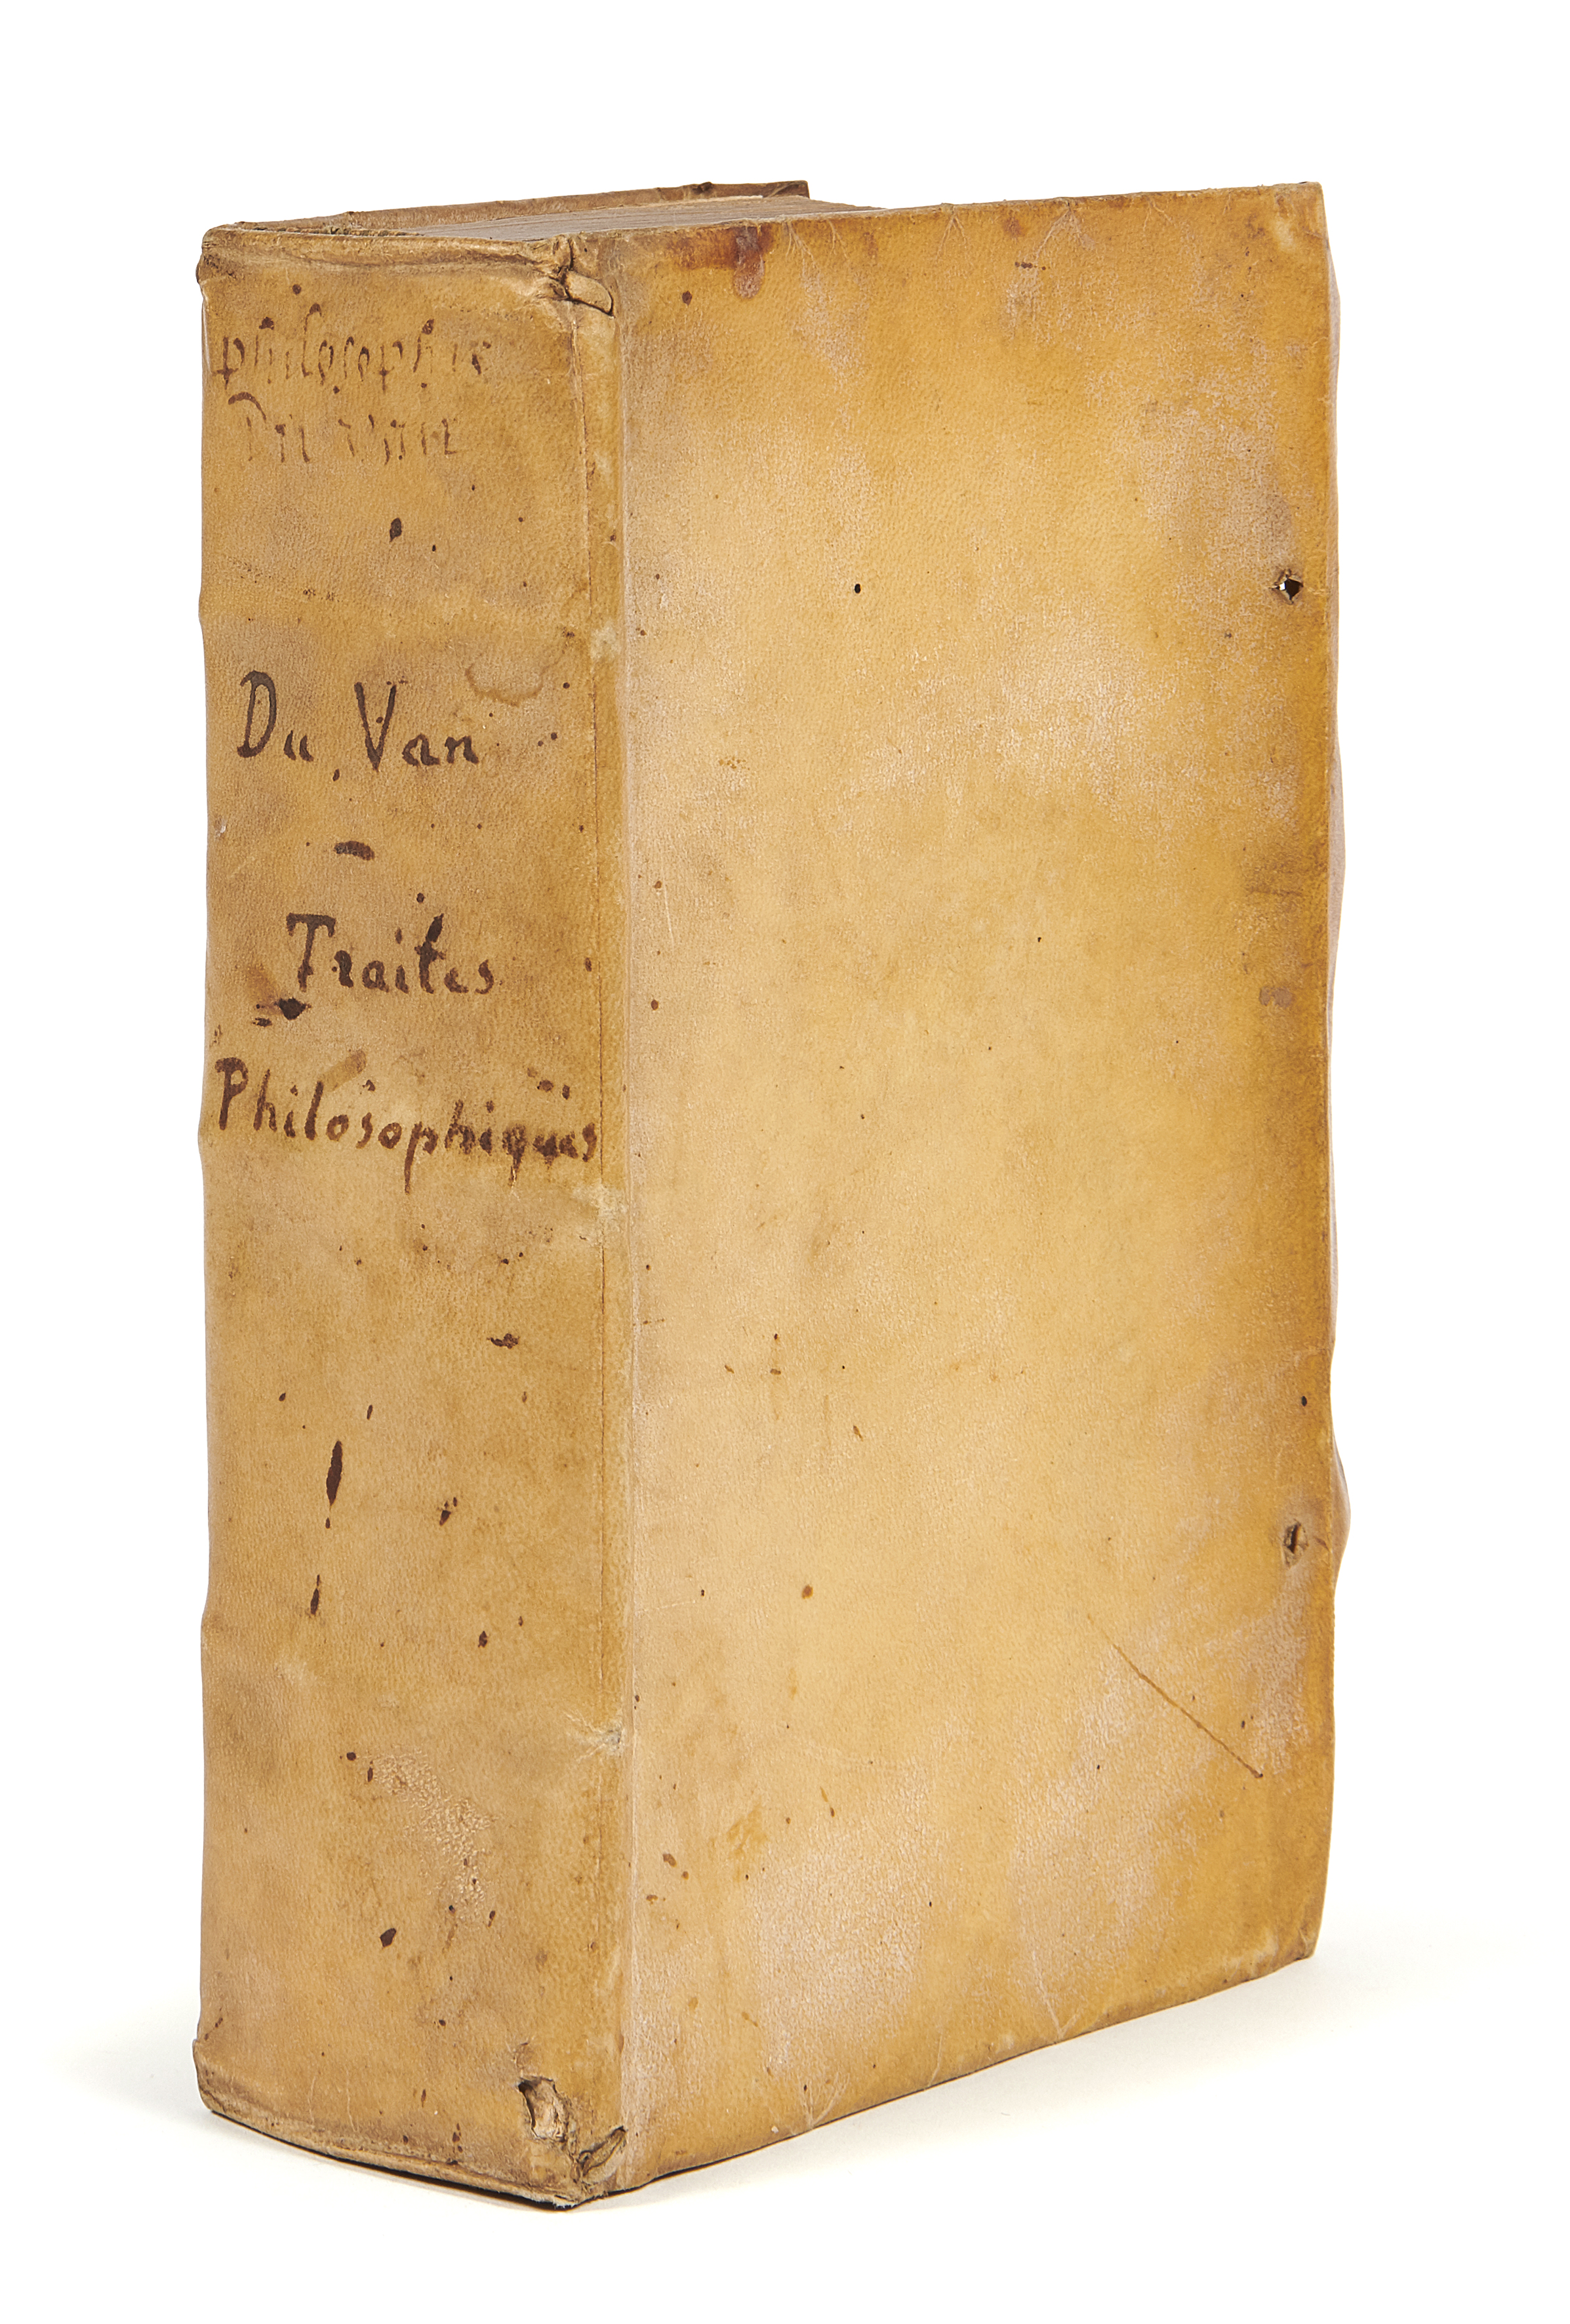 philosophie
Du Vair
Du Van
-
Traites
Philosophiques